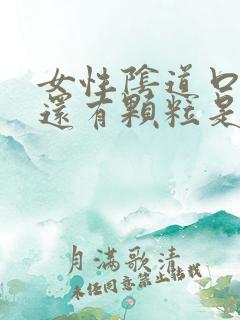 女性陰道口
還有顆粒是
月滿歌清
未经同意禁止转载